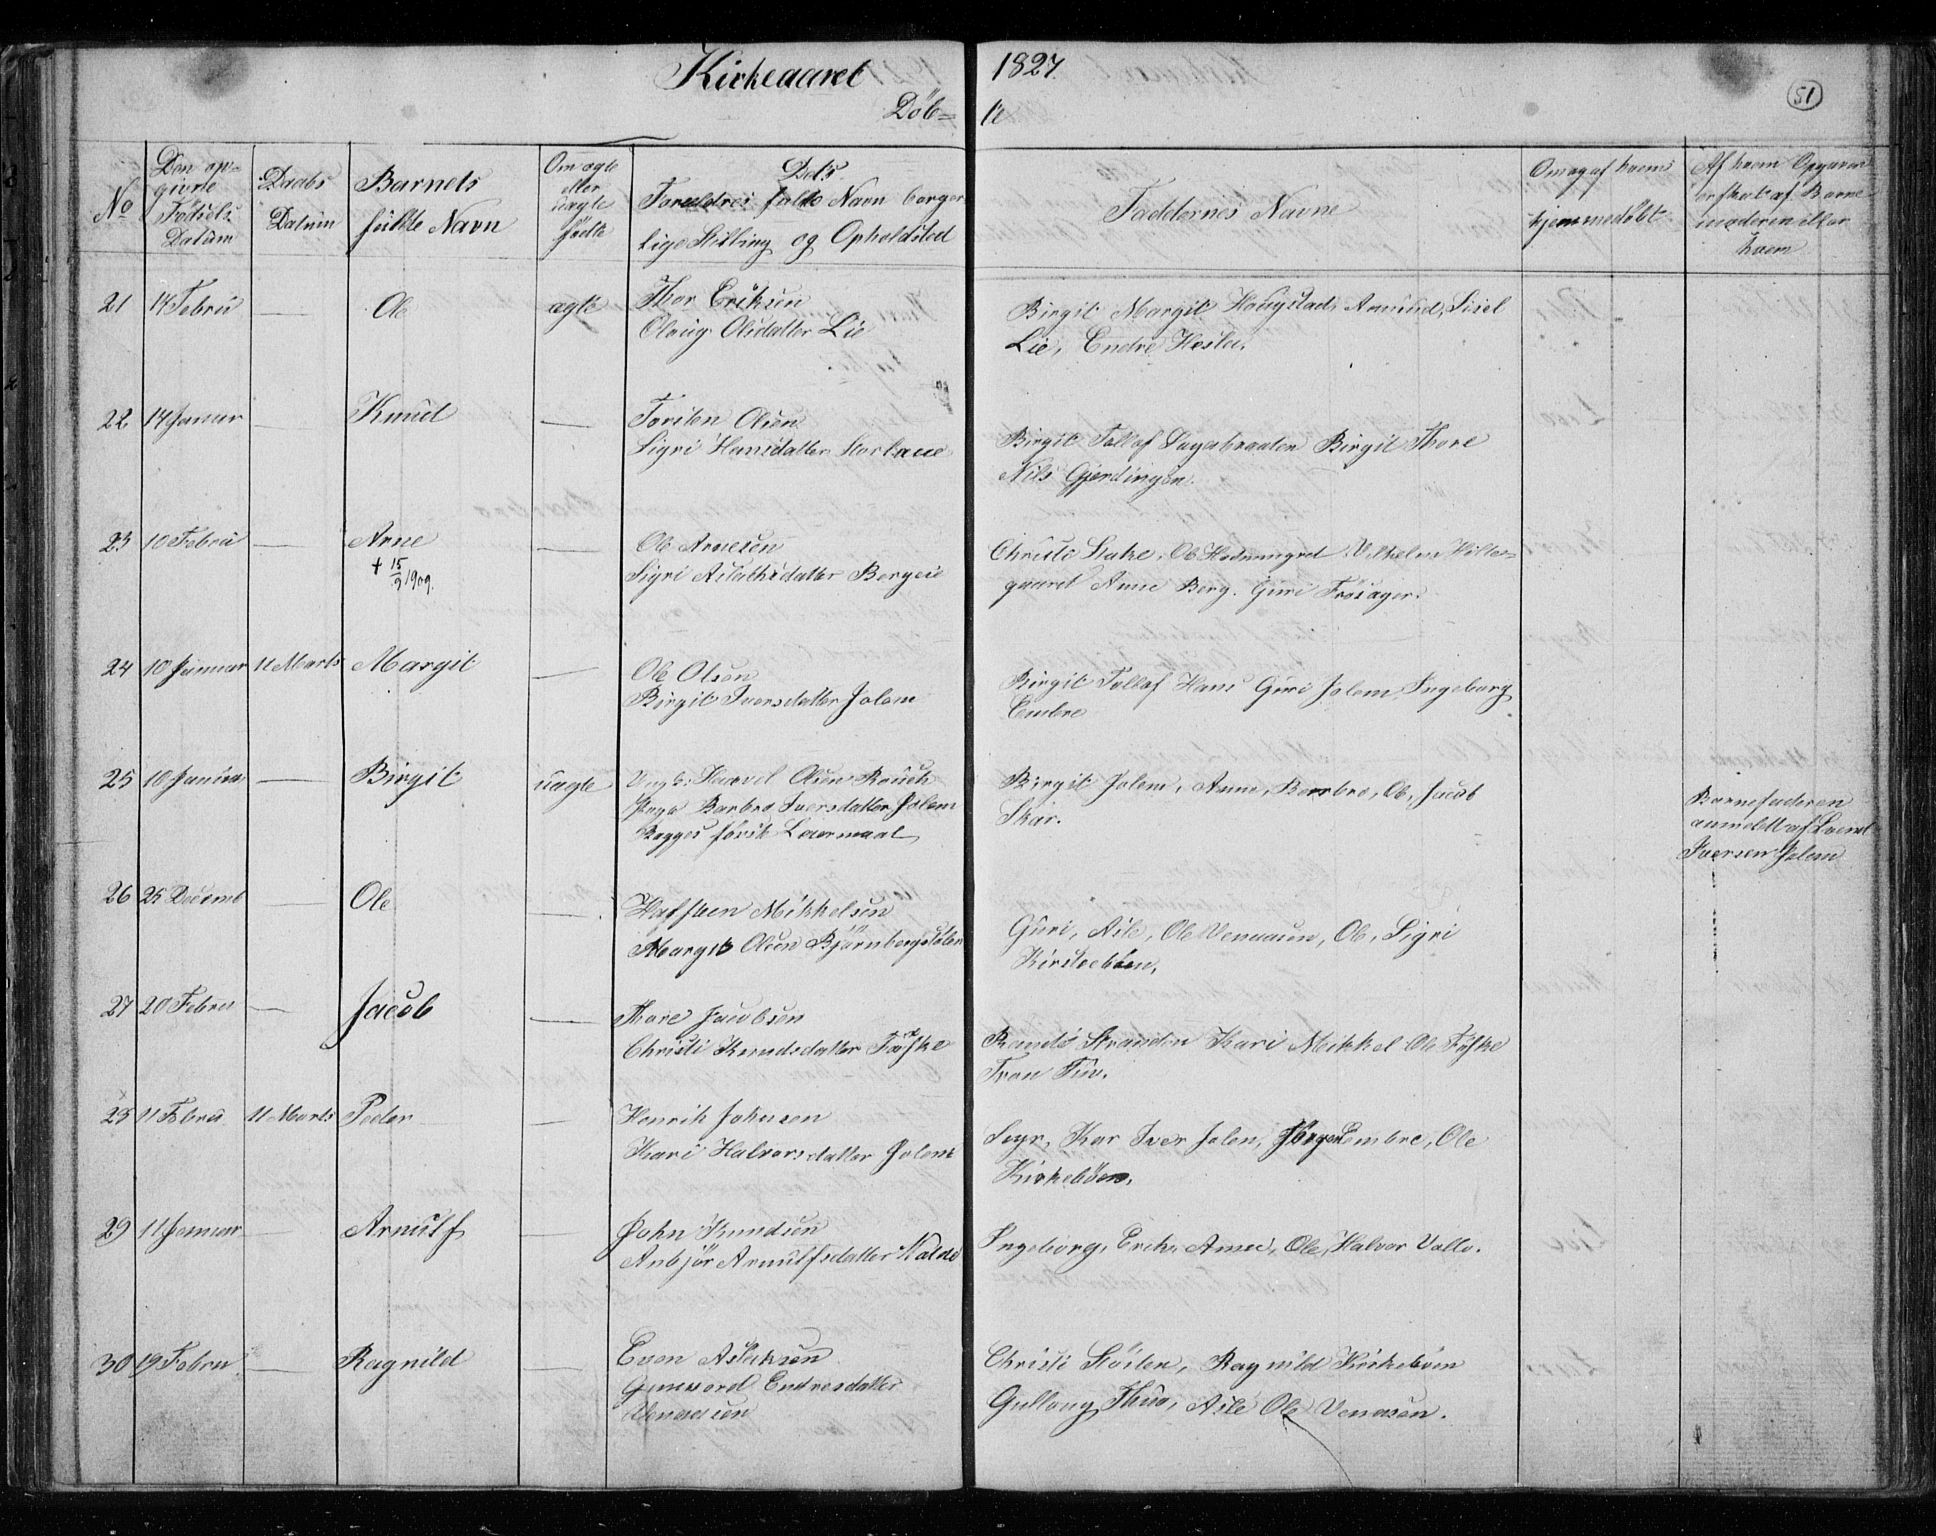 Kirkeaaret 1827.
51
Döb= te
No
Den op-
givne
Födsels
Datum
Daabs
Datum
Barnets
fulde Navn
Om ægte
eller
uægte
födte
Dets
Forældres fulde Navn borger
lige Stilling og Opholdsted
Faddernes Navne
Om og af hvem
hjemmedöbt
Af hvem Opgaven
er skeet af Barne
moderen eller
hvem
21 14 Febru — Ole ægte Thor Eriksen
Olaug Olsdatter Lie
Birgit Margit Haugstad, Amund, Sisel
Lie, Endre Hesla.
22 14 Januar — Knud — Torsten Olsen
Sigri Hansdatter
Birgit Tollef Birgit Thore
Nils Gjerdingen.
23 10 Febru — Arne — Ole Arnesen
+ 15/9 1909.
Sigri Aslaksdatter Bergeie
Christi Ole
gaard Anne Berg. Guri Frösager.
24 10 Januar 11 Marts Margit — Ole Olsen
Birgit Iversdatter Jolem
Birgit Tollef Hans Guri Jolem Ingeborg
Embre
25 10 Januar — Birgit uægte Ungk: Olsen
Pige Barbro Iversdatter Jolem
Begges förste Leiermaal
Birgit Jolem, Anne, Barbro, Ole, Jacob
Skar.
Barnefaderen
anmeldt af Svend
Iversen Jolem
26 25 Decemb — Ole — Hafsten Mikkelsen
Margit Olsen
Guri, Asle, Ole Venaasen, Ole, Sigri
Kirkeböen.
27 20 Febru — Jacob — Thore Jacobsen
Christi Knudsdatter
Strandin Kari Mikkel Ole
Tron Tuv.
28 11 Febru 11 Marts Peder — Henrik Johnsen
Kari Halvorsdatter Jolem
Iver Jolem, Jörgen Embre, Ole
Kirkeböen.
29 11 Januar — Arnulf — John Knudsen
Anbjör Arnulfsdatter
Ingeborg, Erik, Anne, Ole, Halvor
30 19 Febru — Ragnild — Even Aslaksen
Gunvord Endresdatter
Venaasen
Christi Stölen, Ragnild Kirkeböen
Gullaug Thuv, Asle Ole Venaasen.